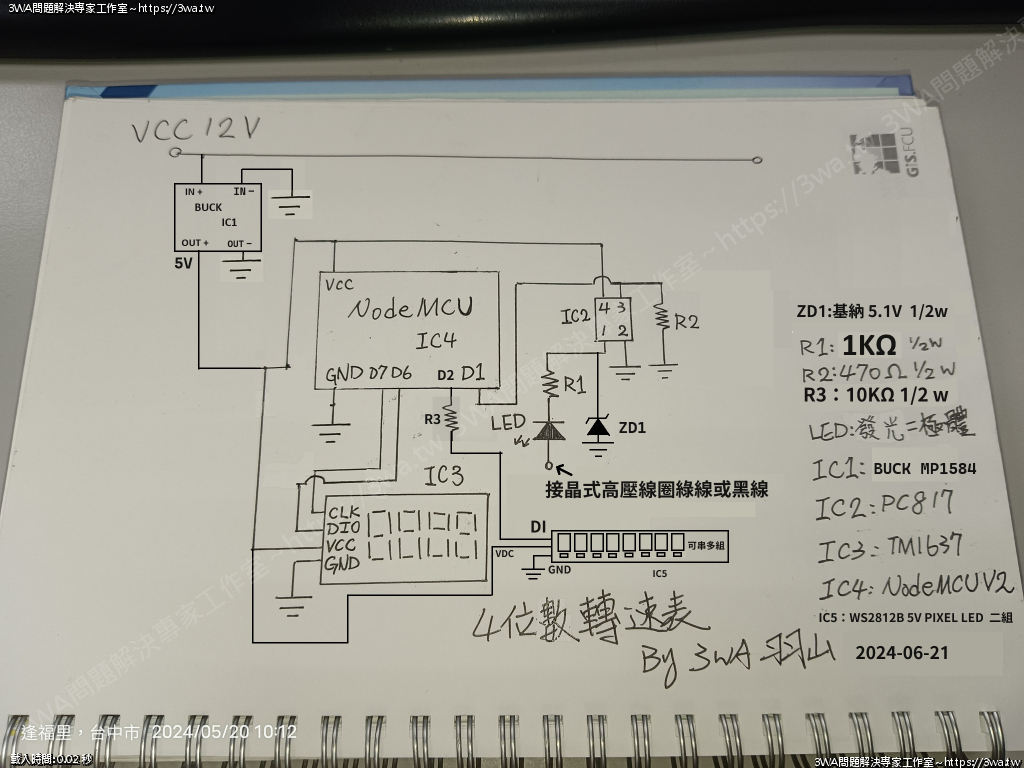 3WA問題解決專家工作室~https://3wa.tw
VCC 12V
GIS.FCU
IN +
IN −
BUCK
IC1
OUT +
OUT −
5V
VCC
NodeMCU
IC4
GND D7 D6 D2 D1
IC2
4 3
1 2
R2
R1
R3
LED
ZD1
接晶式高壓線圈綠線或黑線
IC3
CLK
DIO
VCC
GND
DI
VDC
GND
可串多組
IC5
ZD1:基納 5.1V 1/2w
R1: 1KΩ 1/2w
R2:470Ω 1/2 w
R3：10KΩ 1/2 w
LED:發光二極體
IC1: BUCK MP1584
IC2:PC817
IC3: TM1637
IC4: NodeMCU V2
IC5：WS2812B 5V PIXEL LED 二組
4位數轉速表
By 3WA 羽山
2024-06-21
逢福里，台中市 2024/05/20 10:12
載入時間:0.02 秒
3WA問題解決專家工作室~https://3wa.tw